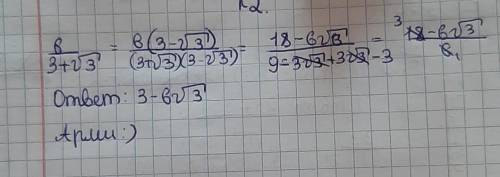 №2.
6/(3+√3) = 6(3-√3)/((3+√3)(3-√3)) = (18-6√3)/(9-3√3+3√3-3) = ³(18-6√3)/6₁
Ответ: 3-6√3
Арми:)